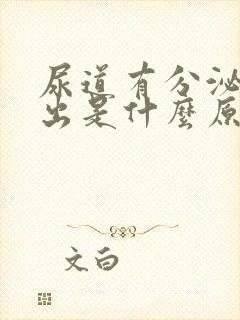 尿道有分泌
出是什麼原
文白